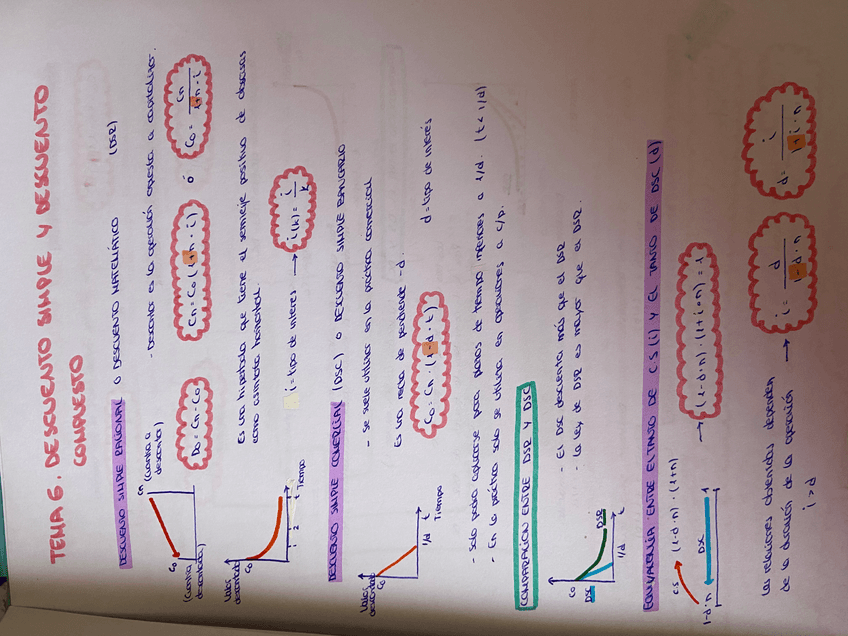 TEMA 6. DESCUENTO SIMPLE Y DESCUENTO
COMPUESTO
DESCUENTO SIMPLE RACIONAL O DESCUENTO MATEMÁTICO (DSR)
- Descontar es la operación opuesta a capitalizar.
Cn (cuantía a
descontar)
C0
(cuantía
descontada)
D0 = Cn - C0
Cn = C0 (1+n · i)
ó
C0 = Cn / 1+n · i
Es una hipérbola que tiene el semieje positivo de abscisas
como asíntota horizontal.
Valor
descontado
C0
1 2 t
Tiempo
i = tipo de interés → i(k) = i / k
DESCUENTO SIMPLE COMERCIAL (DSC) O DESCUENTO SIMPLE BANCARIO
- Se suele utilizar en la práctica comercial
Es una recta de pendiente -d.
Valor
descontado
C0
1/d t
Tiempo
C0 = Cn · (1-d · t)
d = tipo de interés
- Solo podrá aplicarse para plazos de tiempo inferiores a 1/d. (t < 1/d)
- En la práctica solo se utiliza en operaciones a c/p.
COMPARACIÓN ENTRE DSR Y DSC
- El DSC descuenta más que el DSR
- La ley de DSR es mayor que el DSR.
C0
DSC
DSR
1/d t
EQUIVALENCIA ENTRE EL TANTO DE C.S (i) Y EL TANTO DE DSC (d)
CS (1-d·n) · (1+n)
DSC
1-d·n 1
→ (1-d·n) · (1+i·n) = 1
Las relaciones obtenidas dependen
de la duración de la operación →
i = d / 1-d·n
d = i / 1+i·n
i > d